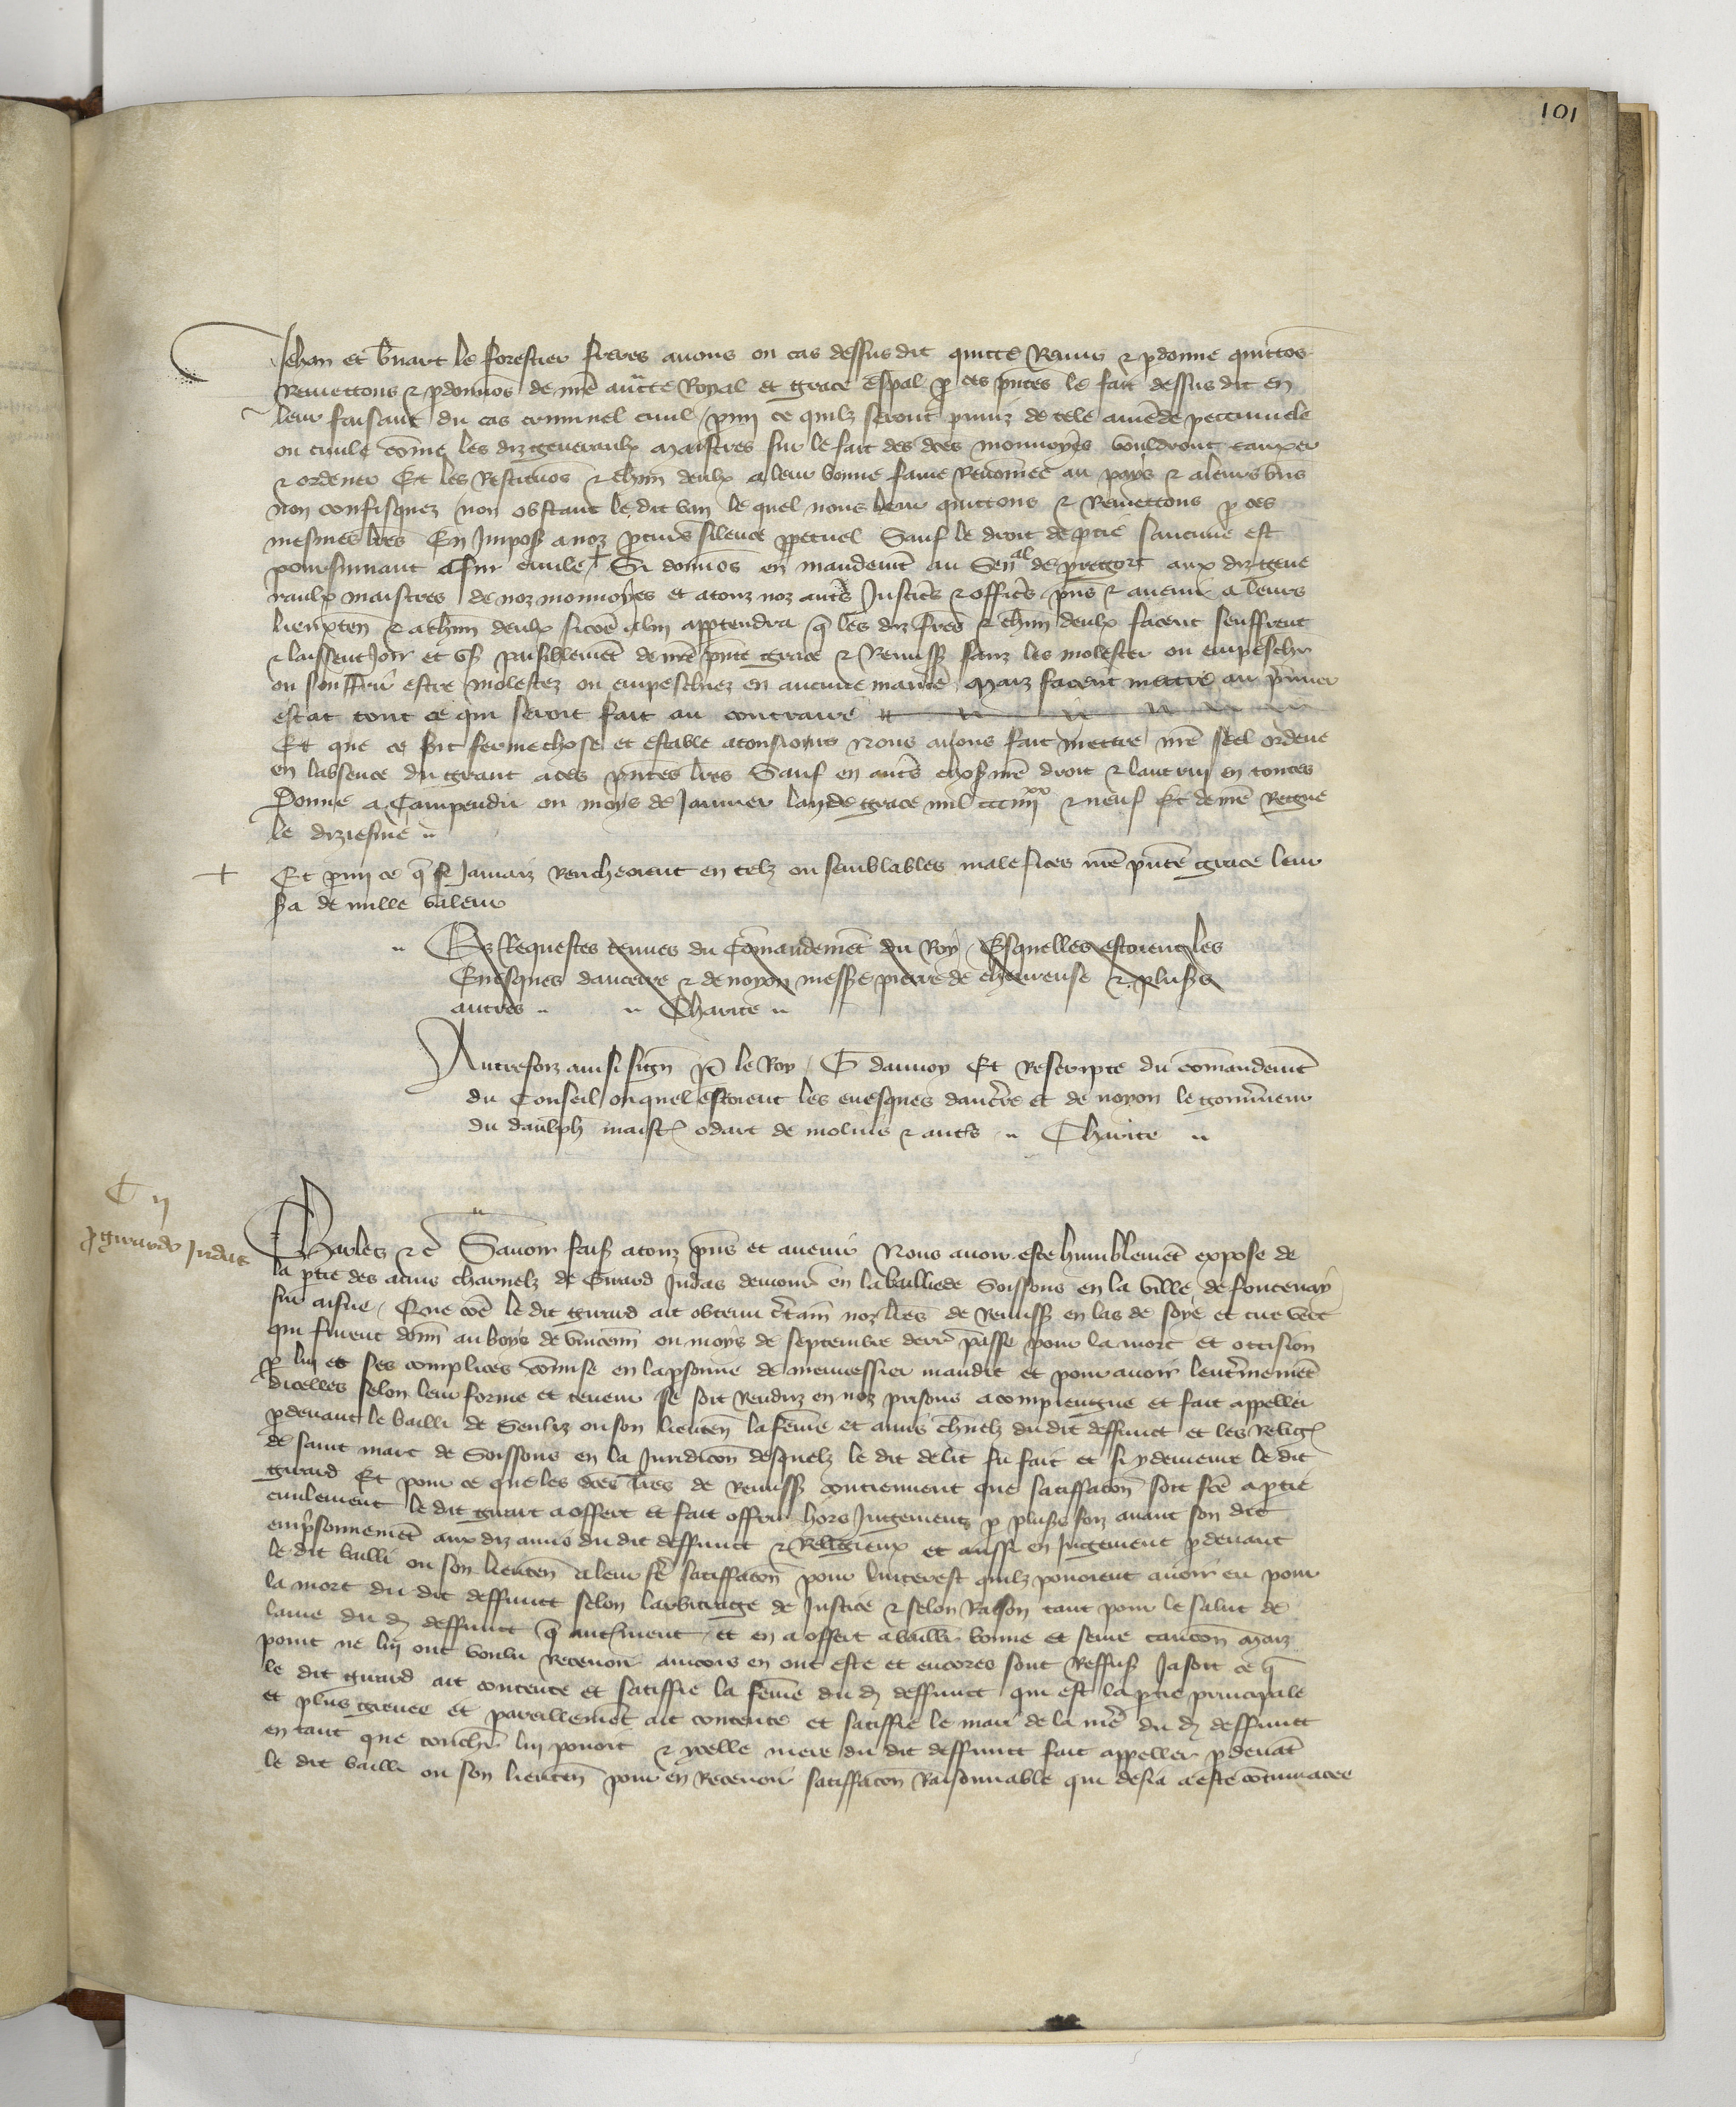 101
Jehan et b̃nart le forestier freres auons ou cas dessus dit quicte Remis ⁊ pdonne quittõs
Remettons ⁊ pdonnõs de nr̃e auc̃te Royal et grace esp̃al p ces p̃ntes le fait dessus dit en
leur faisant du cas criminel ciuil / pmi ce quilz seront puniz de tele amẽde peccuniele
ou ciuile cõme les diz generaulx maistres sur le fait des dc̃es monnoyes vouldront tauxer
⁊ ordener Et les Restituõs ⁊ chũn deulx a leur bonne fame Renõmee au pays ⁊ aleurs bñs
non confisquez non obstant le dit ban le quel nous leur quittons ⁊ Remettons p ces
mesmes lr̃es En Impos̃ a noz p̃cur̃s silence ppetuel Sauf le droit de ptie saucune est
poursuiuant a fin ciuile + Si donnõs en mandemẽt au Sen̄al de pregort aux diz gene
raulx maistres de noz monnoyes et atouz noz autr̃s Justic̃rs ⁊ offic̃rs p̃ns ⁊ auenir a leurs
lieuxteñ ⁊ a chũn deulx sicõe alui appartendra q̃ les diz fr̃es ⁊ chũn deulx facent seuffrent
⁊ laissent Joir et vs̃ paisiblemẽt de nr̃e p̃nte grace ⁊ Remiss̃ sanz les molester ou empescher
ou souffrir estre molestez ou empeschiez en aucune manie Maiz facent mettre au p̃mier
estat tout ce qui seroit fait au contraire
Et que ce soit ferme chose et estable atousiours Nous auons fait mettre nr̃e seel ordene
en labsence du grant aces p̃ntes lr̃es Sauf en autr̃s chos̃ nr̃e droit ⁊ lautruy en toutes
Donne a Compendie ou moys de Januier lan de grace mil ccc iiii xx ⁊ neuf Et de nr̃e Regne
le diziesme
+ Et pmi ce q̃ se Jamaiz Rencheoient en telz ou semblables malefices nr̃e p̃nte grace leur
s̃a de nulle valeur
Es Requestes tenues du Cõmandemẽt du Roy / Esquelles estoient les
Euesques daucerre ⁊ de noyon mess̃e pierre de cheureuse ⁊ pluss̃s
autres Charite
Autresfoiz ainsi sign̄ P̃ le Roy / G dannoy Et Rescripte du cõmandemẽt
du Conseil ouquel estoient les euesques daucr̃re et de noyon le gouũneur
du daulph maistr odart de molins ⁊ autr̃s Charite
C ii
p girardo Judas
Charles ⁊c̃ Sauoir fais̃ atouz p̃ns et auenir Nous auoir este humblemẽt expose de
la ptie des amis charnelz de Girard Judas demour̃ en la bailliede Soissons en la ville de fontenay
sur aisne / Que cõe le dit girard ait obtenu c̃tain̄ noz lr̃es de Remiss̃ en las de soye et cire vert
qui furent donn̄ au boys de vincenn̄ ou moys de septembre derr̃ passe pour la mort et occision
p lui et ses complices cõmise en la psonne de mercessier maudit et pour auoir lenterinemẽt
dicelles selon leur forme et teneur se soit Renduz en noz prisons a compiengne et fait appeller
pdeuant le bailli de Senliz ou son lieuteñ la fẽme et amis ch̃nelz du dit deffunct et les Relig
de saint marc de Soissons en la Juridicõn desquelz le dit delit fu fait et si y demeure le dit
girard Et pour ce que les dc̃es lr̃es de Remiss̃ contiennent que satiffacõn soit fc̃e a ptie
ciuilement le dit girart a offert et fait offrir hors Jugement p pluss̃s foiz auant son dit
emp̃sonnemẽt aux diz amis du dit deffunct ⁊ Religieux et aussi en Jugement pdeuant
le dit bailli ou son lieuteñ a leur fẽ satiffacõn pour linterest quilz pouoient auoir eu pour
la mort du dit deffunct selon larbitrage de Justice ⁊ selon Raison tant pour le salut de
lame du d deffunct q̃ autrement / et en a offert abaillir bonne et seure caucõn Maiz
point ne luy ont voulu Receuoir aincois en ont este et encores sont Reffus̃ Jasoit ce q̃
le dit girard ait contente et satiffie la fẽme du d deffunct qui est la ptie principale
et plus greuee et pareillemẽt ait contente et satiffie le mari de la mẽ du d deffunct
en tant que touch̃r luy pouoit ⁊ ycelle mere du dit deffunct fait appeller pdeuãt
le dit bailli ou son lieuteñ pour en Receuoir satiffacõn Raisonnable qui desia a este cõtumacee